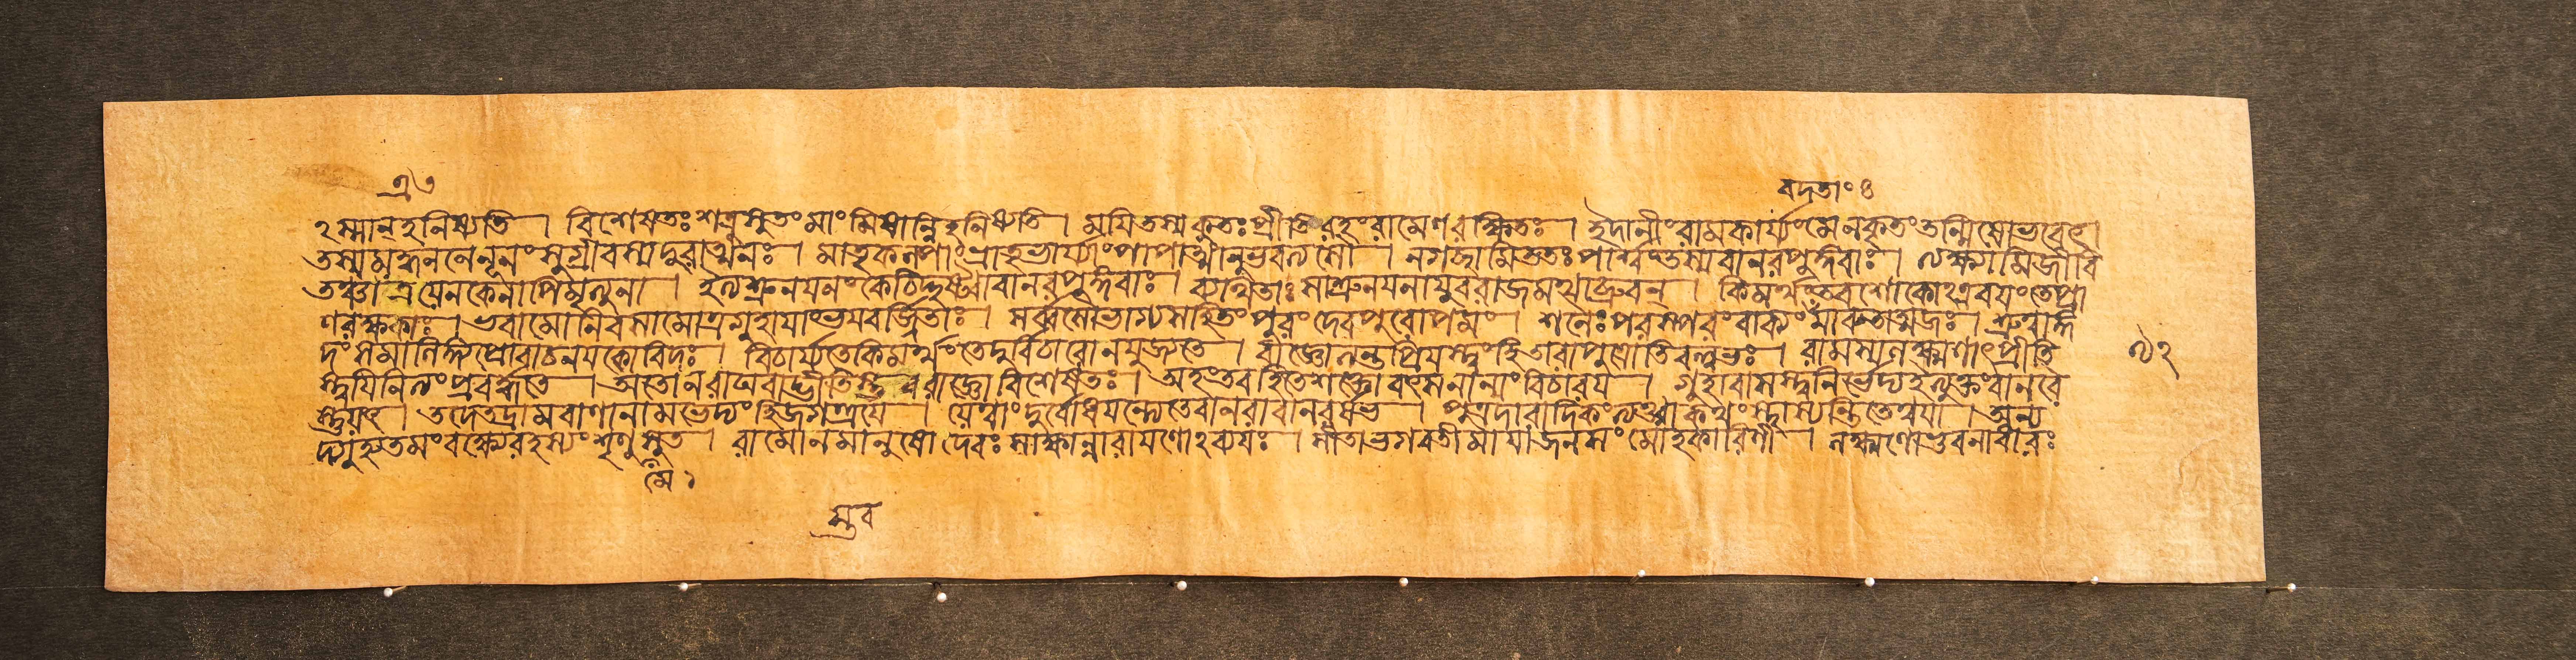 এ৩
বদতাং ৪
ঽস্মান্ হনিষ্যতি । বিশেষতঃ শত্রুসুতং মাং মিষান্নিহনিষ্যতি । ময়ি তস্য কুতঃ প্রীতিরহং রামেণ রক্ষিতঃ । ইদানীং রামকার্য্যং মে ন কৃতং তন্মিষো ভবেৎ ।
তস্য মদ্ধননে নূনং সুগ্রীবস্য দুরাত্মনঃ । মাতৃকল্পাং ভ্রাতৃভার্য্যাং পাপাত্মানুভবত্যসৌ । ন গচ্ছামি ততঃ পার্শ্বং তস্য বানরপুঙ্গবাঃ । ত্যক্ষ্যামি জীবি
তঞ্চাত্র যেন কেনাপি মৃত্যুনা । ইত্যশ্রুনয়নং কেচিদ্দৃষ্ট্বা বানরপুঙ্গবাঃ । ব্যথিতাঃ সাশ্রুনয়না যুবরাজমথাব্রুবন্ । কিমর্থং তব শোকোঽত্র বয়ং তে প্রা
ণরক্ষকাঃ । ভবামো নিবসামোত্র গুহায়াং ভয়বর্জ্জিতাঃ । সর্ব্বসৌভাগ্যসহিতং পুরং দেবপুরোপমং । শনৈঃ পরস্পরং বাক্যং মারুতাত্মজঃ । শ্রুত্বাঙ্গ
দং সমালিঙ্গ্য প্রোবাচ নয়কোবিদঃ । বিচার্য্যতে কিমর্থং তে দুর্বিচারো ন যুজ্যতে । রাজ্ঞোত্যন্তপ্রিয়স্ত্বং হি তারাপুত্রোতিবল্লভঃ । রামস্য লক্ষ্মণাৎ প্রীতি
স্ত্বয়ি নিত্যং প্রবর্দ্ধতে । অতো ন রাঘবাদ্ভীতিস্তব রাজ্ঞো বিশেষতঃ । অহং তব হিতে শক্তো বৎস নান্যং বিচারয় । গুহাবাসস্তু নির্ভেদ্য ইত্যুক্তং বানরৈ
স্তু যৎ । তদেতদ্রামবাণানামভেদ্যং কিং জগত্রয়ে । যে ত্বাং দুর্বোধয়ন্ত্যেতে বানরা বানরর্ষভ । পুত্রদারাদিকং ত্যক্ত্বা কথং স্থাস্যন্তি তে ত্বয়া । অন্য
দ্গুহ্যতমং বক্ষ্যে রহস্যং শৃণু সুত । রামো ন মানুষো দেবঃ সাক্ষান্নারায়ণোঽব্যয়ঃ । সীতা ভগবতী মায়া জনসংমোহকারিণী । লক্ষ্মণো ভুবনাধারঃ
মে ।
স্তব